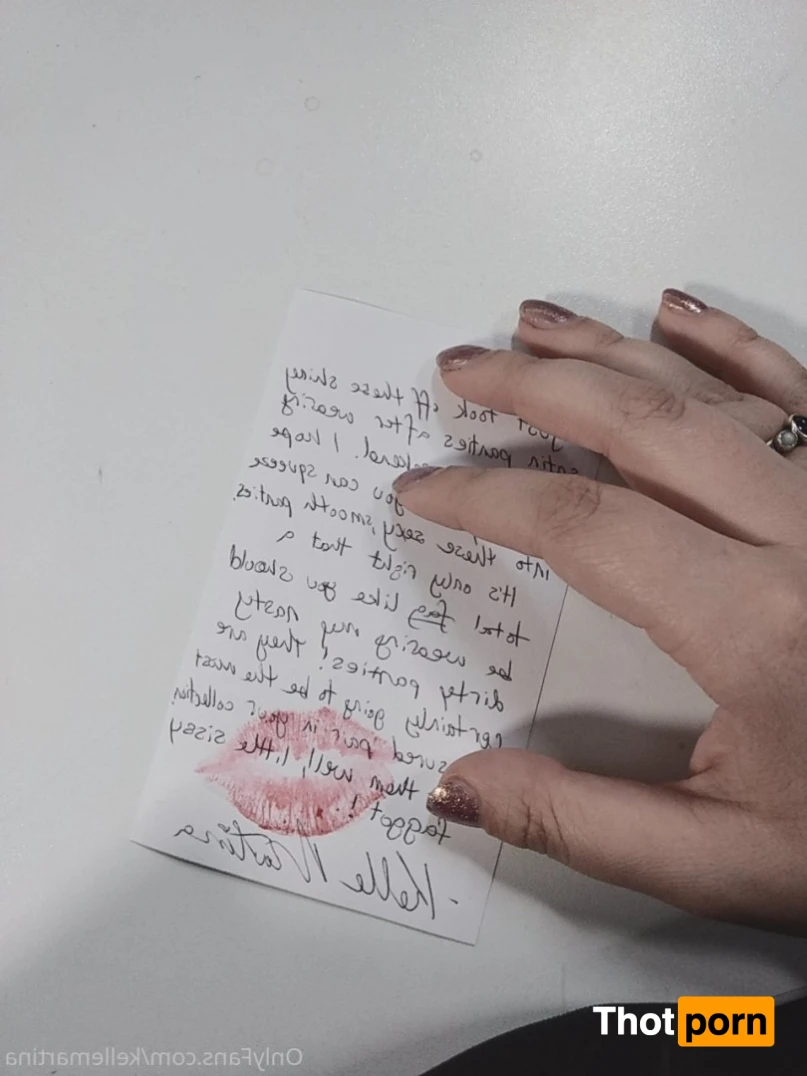 Just took off these shiny
satin panties after wearing
I hope
you can squeeze
into these sexy, smooth panties.
It's only right that a
total fag like you should
be wearing my nasty
dirty panties! They are
certainly going to be the most
sured pair in your collection.
them well, little sissy
faggot!!
- Kelle Martina
OnlyFans.com/kellemartina
Thotporn